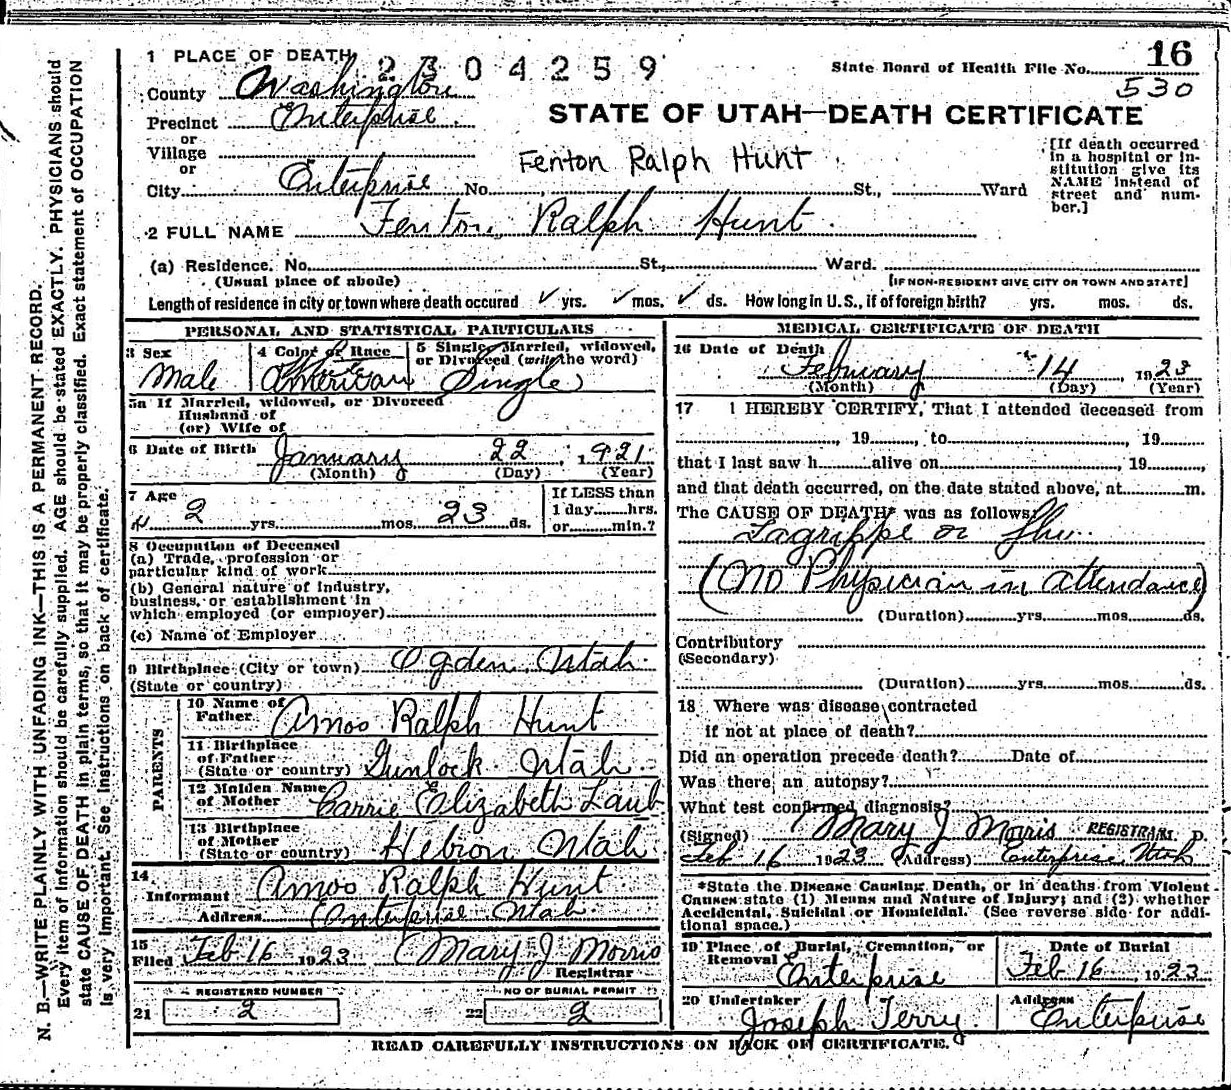 16
1 PLACE OF DEATH 2304259 State Board of Health File No. 530
County Washington
Precinct Enterprise
STATE OF UTAH—DEATH CERTIFICATE
or
Village
or
Fenton Ralph Hunt
City Enterprise No. St., Ward
[If death occurred in a hospital or in-
stitution give its
NAME instead of
street and num-
ber.]
2 FULL NAME Fenton Ralph Hunt
(a) Residence. No. St., Ward.
(Usual place of abode) [IF NON-RESIDENT GIVE CITY OR TOWN AND STATE]
Length of residence in city or town where death occured ✓ yrs. ✓ mos. ✓ ds. How long in U.S., if of foreign birth? yrs. mos. ds.
PERSONAL AND STATISTICAL PARTICULARS
3 Sex Male
4 Color or Race White American
5 Single, Married, widowed,
or Divorced (write the word)
Single
5a If Married, widowed, or Divorced
Husband of
(or) Wife of
6 Date of Birth January 22, 1921
(Month) (Day) (Year)
7 Age
2 yrs. mos. 23 ds.
If LESS than
1 day hrs.
or min.?
8 Occupation of Deceased
(a) Trade, profession or
particular kind of work
(b) General nature of industry,
business, or establishment in
which employed (or employer)
(c) Name of Employer
9 Birthplace (City or town) Ogden Utah
(State or country)
PARENTS
10 Name of
Father Amos Ralph Hunt
11 Birthplace
of Father
(State or country) Gunlock Utah
12 Maiden Name
of Mother Carrie Elizabeth Laub
13 Birthplace
of Mother
(State or country) Hebron Utah
14
Informant Amos Ralph Hunt
Address Enterprise Utah
15
Filed Feb 16 1923 Mary J Morris
Registrar
REGISTERED NUMBER
21 2
NO OF BURIAL PERMIT
22 2
MEDICAL CERTIFICATE OF DEATH
16 Date of Death
February 14, 1923
(Month) (Day) (Year)
17 I HEREBY CERTIFY, That I attended deceased from
, 19 , to , 19
that I last saw h alive on , 19 ,
and that death occurred, on the date stated above, at m.
The CAUSE OF DEATH* was as follows:
Lagrippe or Flu
(No Physician in attendance)
(Duration) yrs. mos. ds.
Contributory
(Secondary)
(Duration) yrs. mos. ds.
18 Where was disease contracted
if not at place of death?
Did an operation precede death? Date of
Was there an autopsy?
What test confirmed diagnosis?
(Signed) Mary J Morris REGISTRAR D.
Feb 16 1923 (Address) Enterprise Utah
*State the Disease Causing Death, or in deaths from Violent
Causes state (1) Means and Nature of Injury; and (2) whether
Accidental, Suicidal or Homicidal. (See reverse side for addi-
tional space.)
19 Place of Burial, Cremation, or
Removal Enterprise
Date of Burial
Feb 16 1923
20 Undertaker
Joseph Terry
Address
Enterprise
READ CAREFULLY INSTRUCTIONS ON BACK OF CERTIFICATE.
N. B.—WRITE PLAINLY WITH UNFADING INK—THIS IS A PERMANENT RECORD.
Every item of information should be carefully supplied. AGE should be stated EXACTLY. PHYSICIANS should
state CAUSE OF DEATH in plain terms, so that it may be properly classified. Exact statement of OCCUPATION
is very important. See instructions on back of certificate.